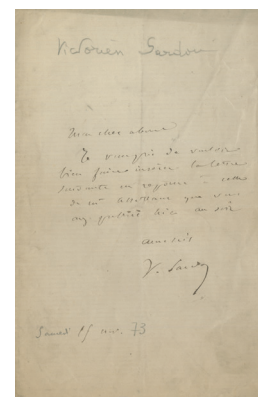 Victorien Sardou
Mon cher
Je vous prie de vouloir
bien faire insérer la lettre
suivante en réponse à celle
de mr que vous
avez publiée hier au soir
V. Sardou
Samedi 15 nov. 73